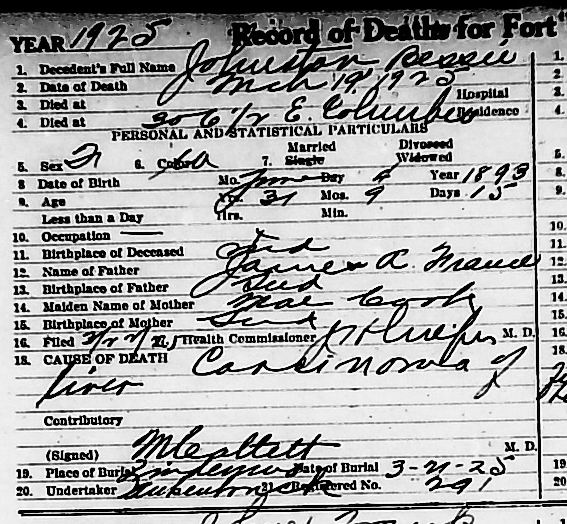 YEAR 1925 Record of Deaths for Fort
1. Decedent's Full Name Johnston Bessie
2. Date of Death Mch 19, 1925
3. Died at Hospital
4. Died at 306 1/2 E. Columbia Residence
PERSONAL AND STATISTICAL PARTICULARS
5. Sex F 6. Color 7. Married Single Divorced Widowed
8 Date of Birth Mo. June Day 4 Year 1893
9. Age Yrs. 31 Mos. 9 Days 15
Less than a Day Hrs. Min.
10. Occupation —
11. Birthplace of Deceased Ind
12. Name of Father James A.
13. Birthplace of Father Ind
14. Maiden Name of Mother Mae Cook
15. Birthplace of Mother Ind
16. Filed Health Commissioner M. D.
18. CAUSE OF DEATH Carcinoma of
liver
Contributory
(Signed) M. D.
19. Place of Burial Lindenwood Date of Burial 3-21-25
20. Undertaker 21. Registered No. 291